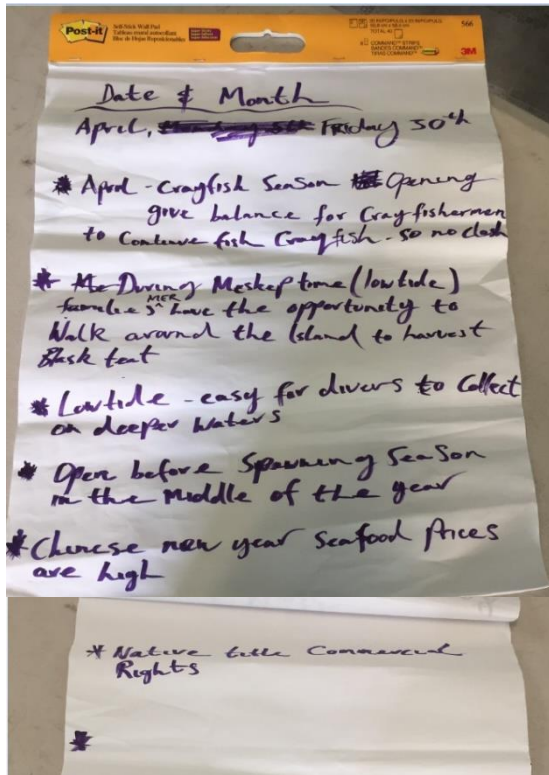 Post-it
Self-Stick Wall Pad
566
3M
Date & Month
April, Friday 30th
* April - Crayfish Season Opening
give balance for Crayfishermen
to continue fish Crayfish - so no clash
* During Meskep time (lowtide)
families MER have the opportunity to
Walk around the Island to harvest
Black teat
* Lowtide - easy for divers to Collect
on deeper waters
* Open before Spawning Season
in the Middle of the year
* Chinese new year Seafood Prices
are high
* Native title Commercial
Rights
*